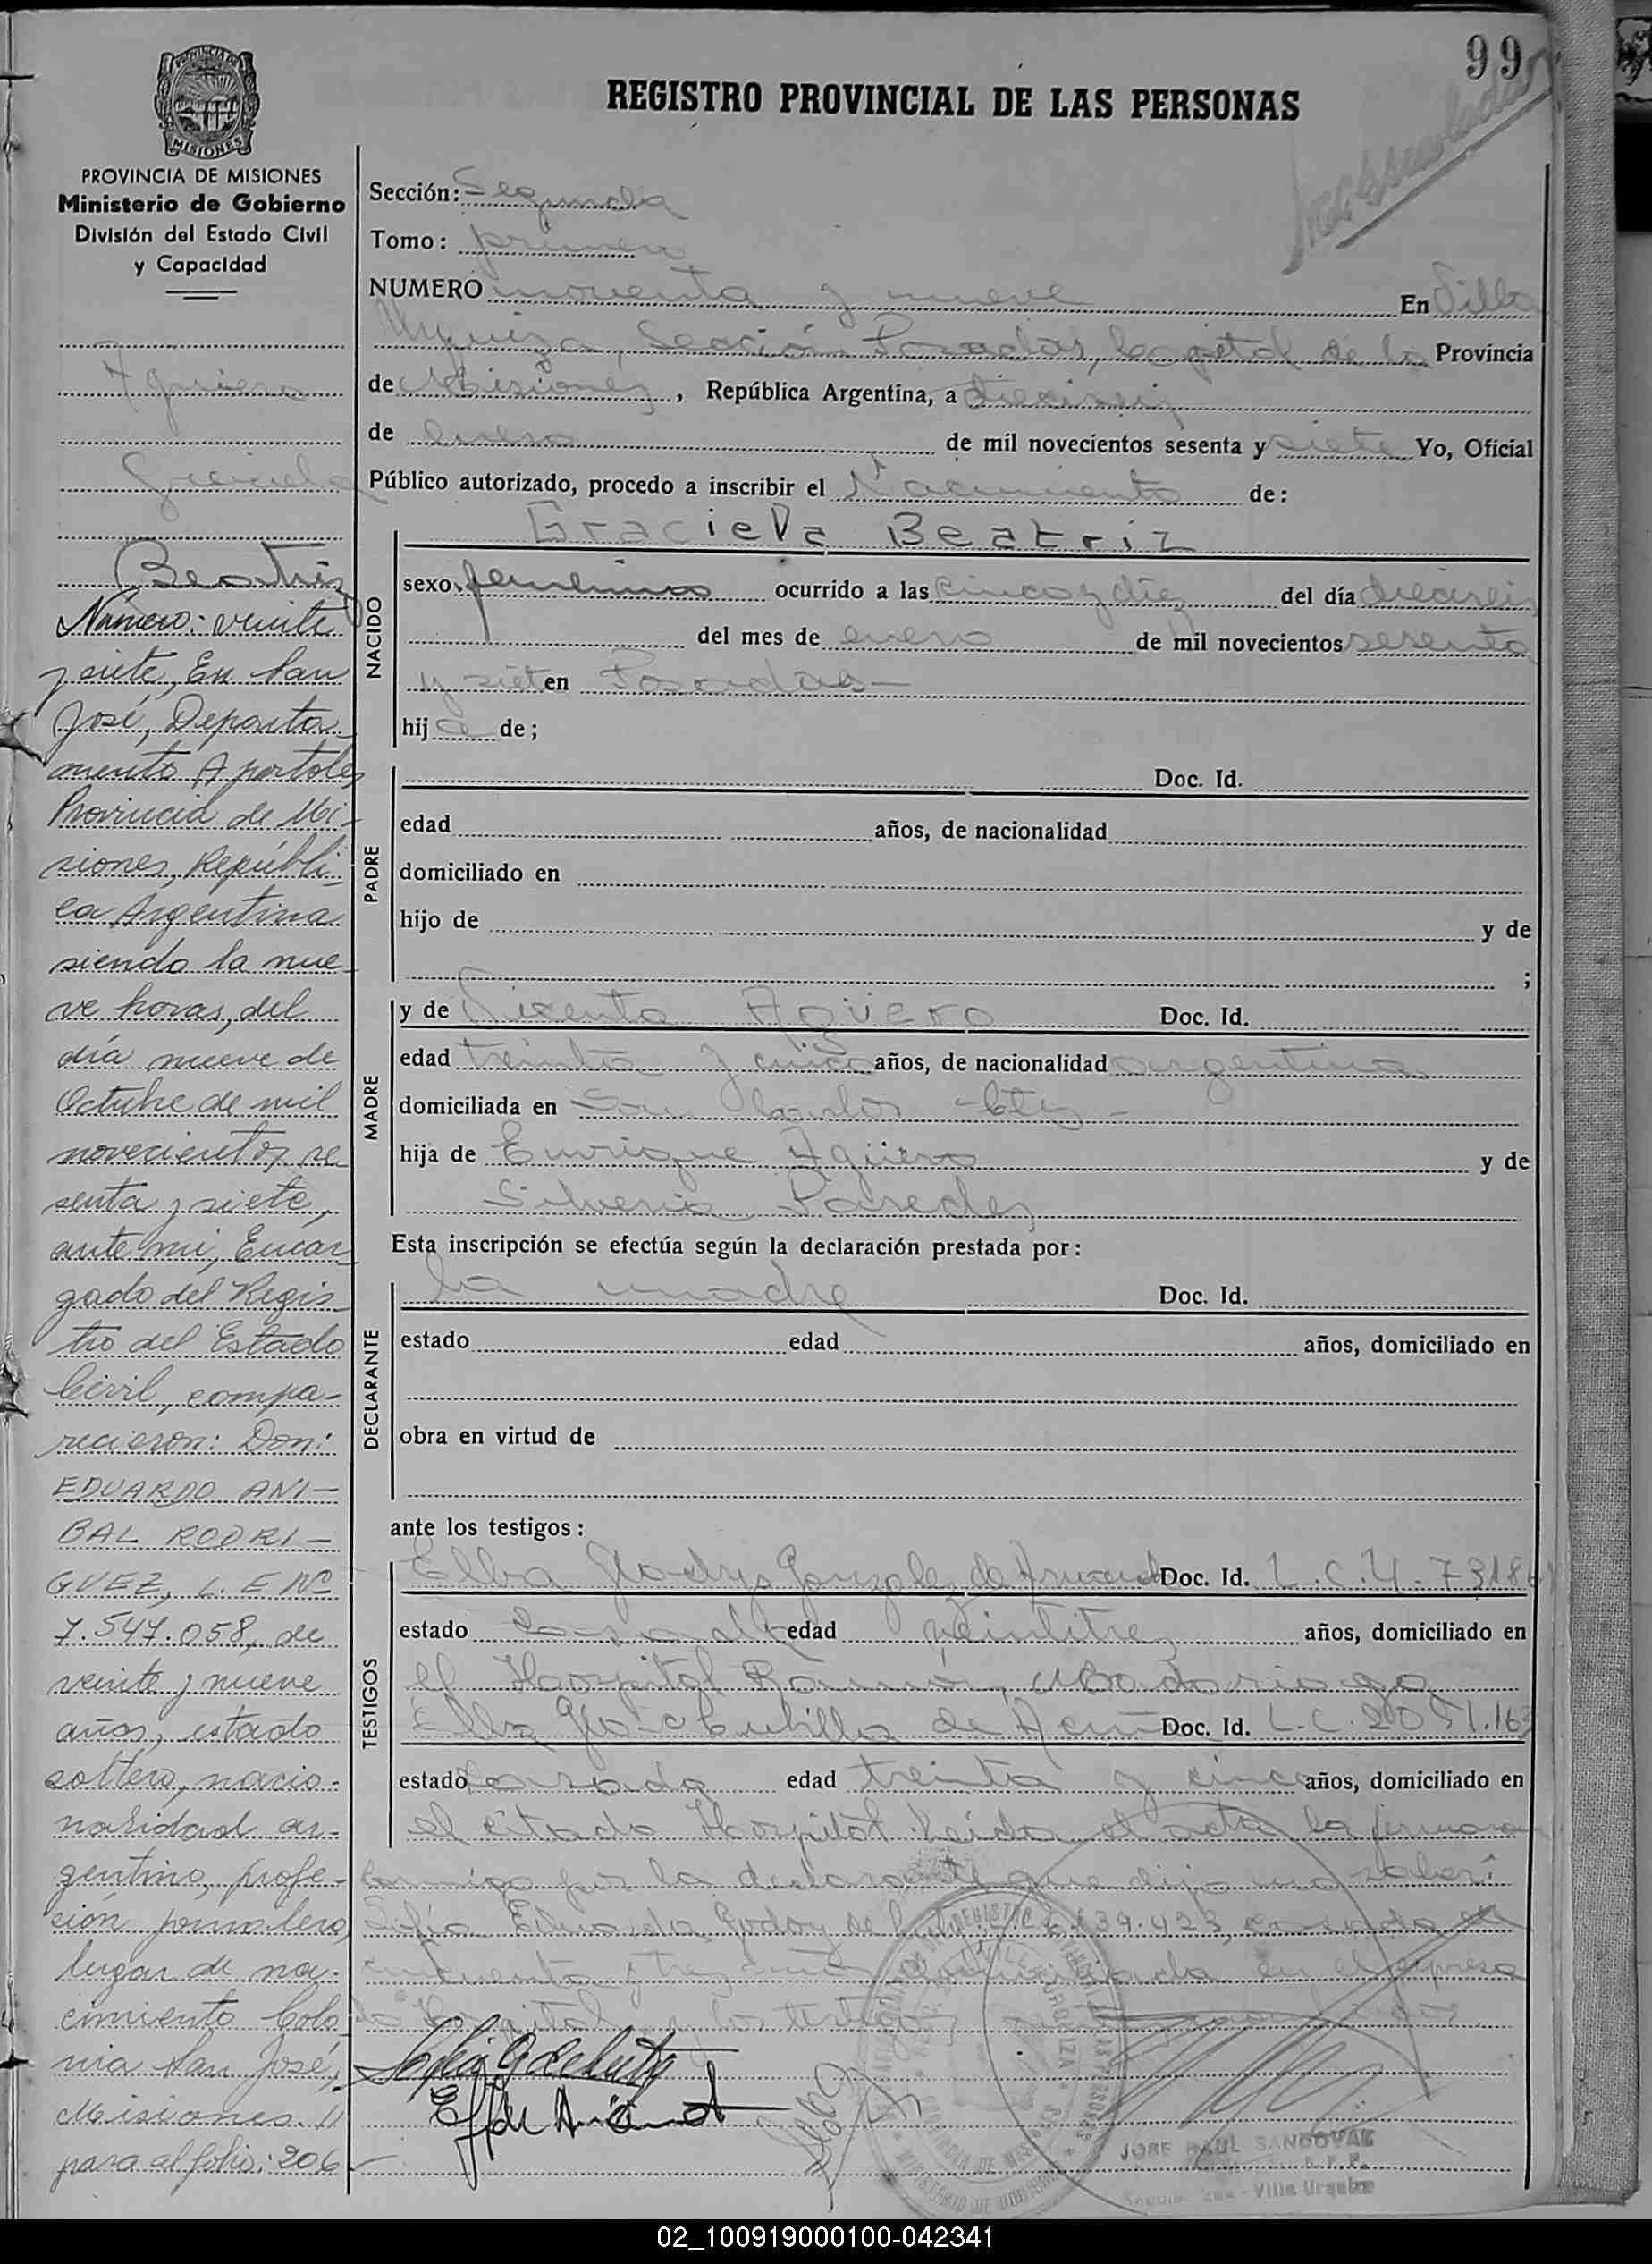 99
REGISTRO PROVINCIAL DE LAS PERSONAS
MISIONES
PROVINCIA DE MISIONES
Ministerio de Gobierno
División del Estado Civil
y Capacidad
Aguero
Graciela
Beatriz
Número: veinte
y siete, En San
José, Departa-
mento Apostoles
Provincia de Mi-
siones, Repúbli-
ca Argentina
siendo la nue-
ve horas, del
día nueve de
Octubre de mil
novecientos se
senta y siete,
ante mi, Encar-
gado del Regis-
tro del Estado
Civil, compa-
recieron: Don:
EDUARDO ANI-
BAL RODRI-
GUEZ, L. E Nº
7.547.058, de
veinte y nueve
años, estado
soltero, nacio-
nalidad ar-
gentino, profe-
ción jornalero,
lugar de na-
cimiento Colo-
nia San José,
Misiones. //
pasa al folio: 206
Sección: Segunda
Tomo: primero
NUMERO noventa y nueve En Villa
Urquiza, Sección Posadas, Capital de la Provincia
de Misiones, República Argentina, a dieciseis
de enero de mil novecientos sesenta y siete Yo, Oficial
Público autorizado, procedo a inscribir el Nacimiento de:
NACIDO
Graciela Beatriz
sexo femenino ocurrido a las cinco y diez del día dieciseis
del mes de enero de mil novecientos sesenta
y siete en Posadas-
hija de;
PADRE
Doc. Id.
edad años, de nacionalidad
domiciliado en
hijo de y de
;
MADRE
y de Vicenta Agüero Doc. Id.
edad treinta y cinco años, de nacionalidad argentina
domiciliada en San Carlos -Ctes-
hija de Enrique Agüero y de
Silveria Paredes
Esta inscripción se efectúa según la declaración prestada por:
DECLARANTE
la madre Doc. Id.
estado edad años, domiciliado en
obra en virtud de
ante los testigos:
TESTIGOS
Elba Gladys Gonzalez de Doc. Id. L.C.4.7318
estado casada edad veintitres años, domiciliado en
el Hospital Ramón Madariaga
Elba de Doc. Id. L.C. 2051.163
estado casada edad treinta y cinco años, domiciliado en
el citado Hospital. Leida el acta la firman
conmigo por la declarante que dijo no saber:
Sofia Eduarda Godoy de 39.423, casada de
cincuenta y tres domiciliada en el expresa
do Hospital y los testigos
JOSE RAUL SANDOVAL
Villa Urquiza
02_100919000100-042341